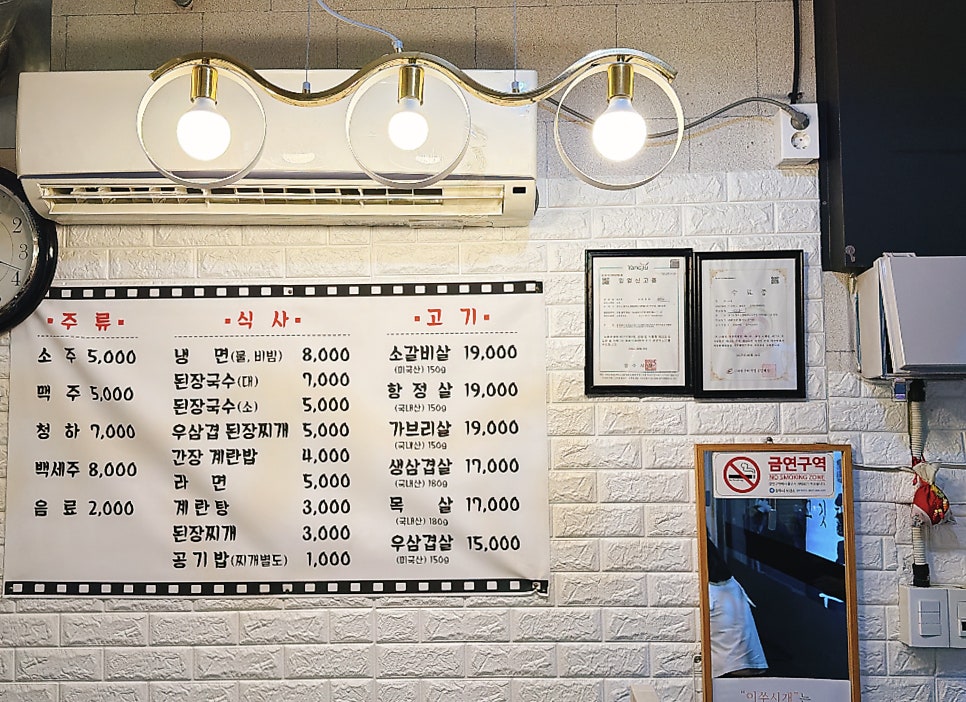 주류
소주 5,000
맥주 5,000
청하 7,000
백세주 8,000
음료 2,000
식사
냉면(물,비빔) 8,000
된장국수(대) 7,000
된장국수(소) 5,000
우삼겹 된장찌개 5,000
간장 계란밥 4,000
라면 5,000
계란탕 3,000
된장찌개 3,000
공기밥(찌개별도) 1,000
고기
소갈비살 19,000
(미국산) 150g
항정살 19,000
(국내산) 150g
가브리살 19,000
(국내산) 150g
생삼겹살 17,000
(국내산) 180g
목살 17,000
(국내산) 180g
우삼겹살 15,000
(미국산) 150g
영업신고증
수료증
금연구역
NO SMOKING ZONE
"이쑤시개"는
2
3
4